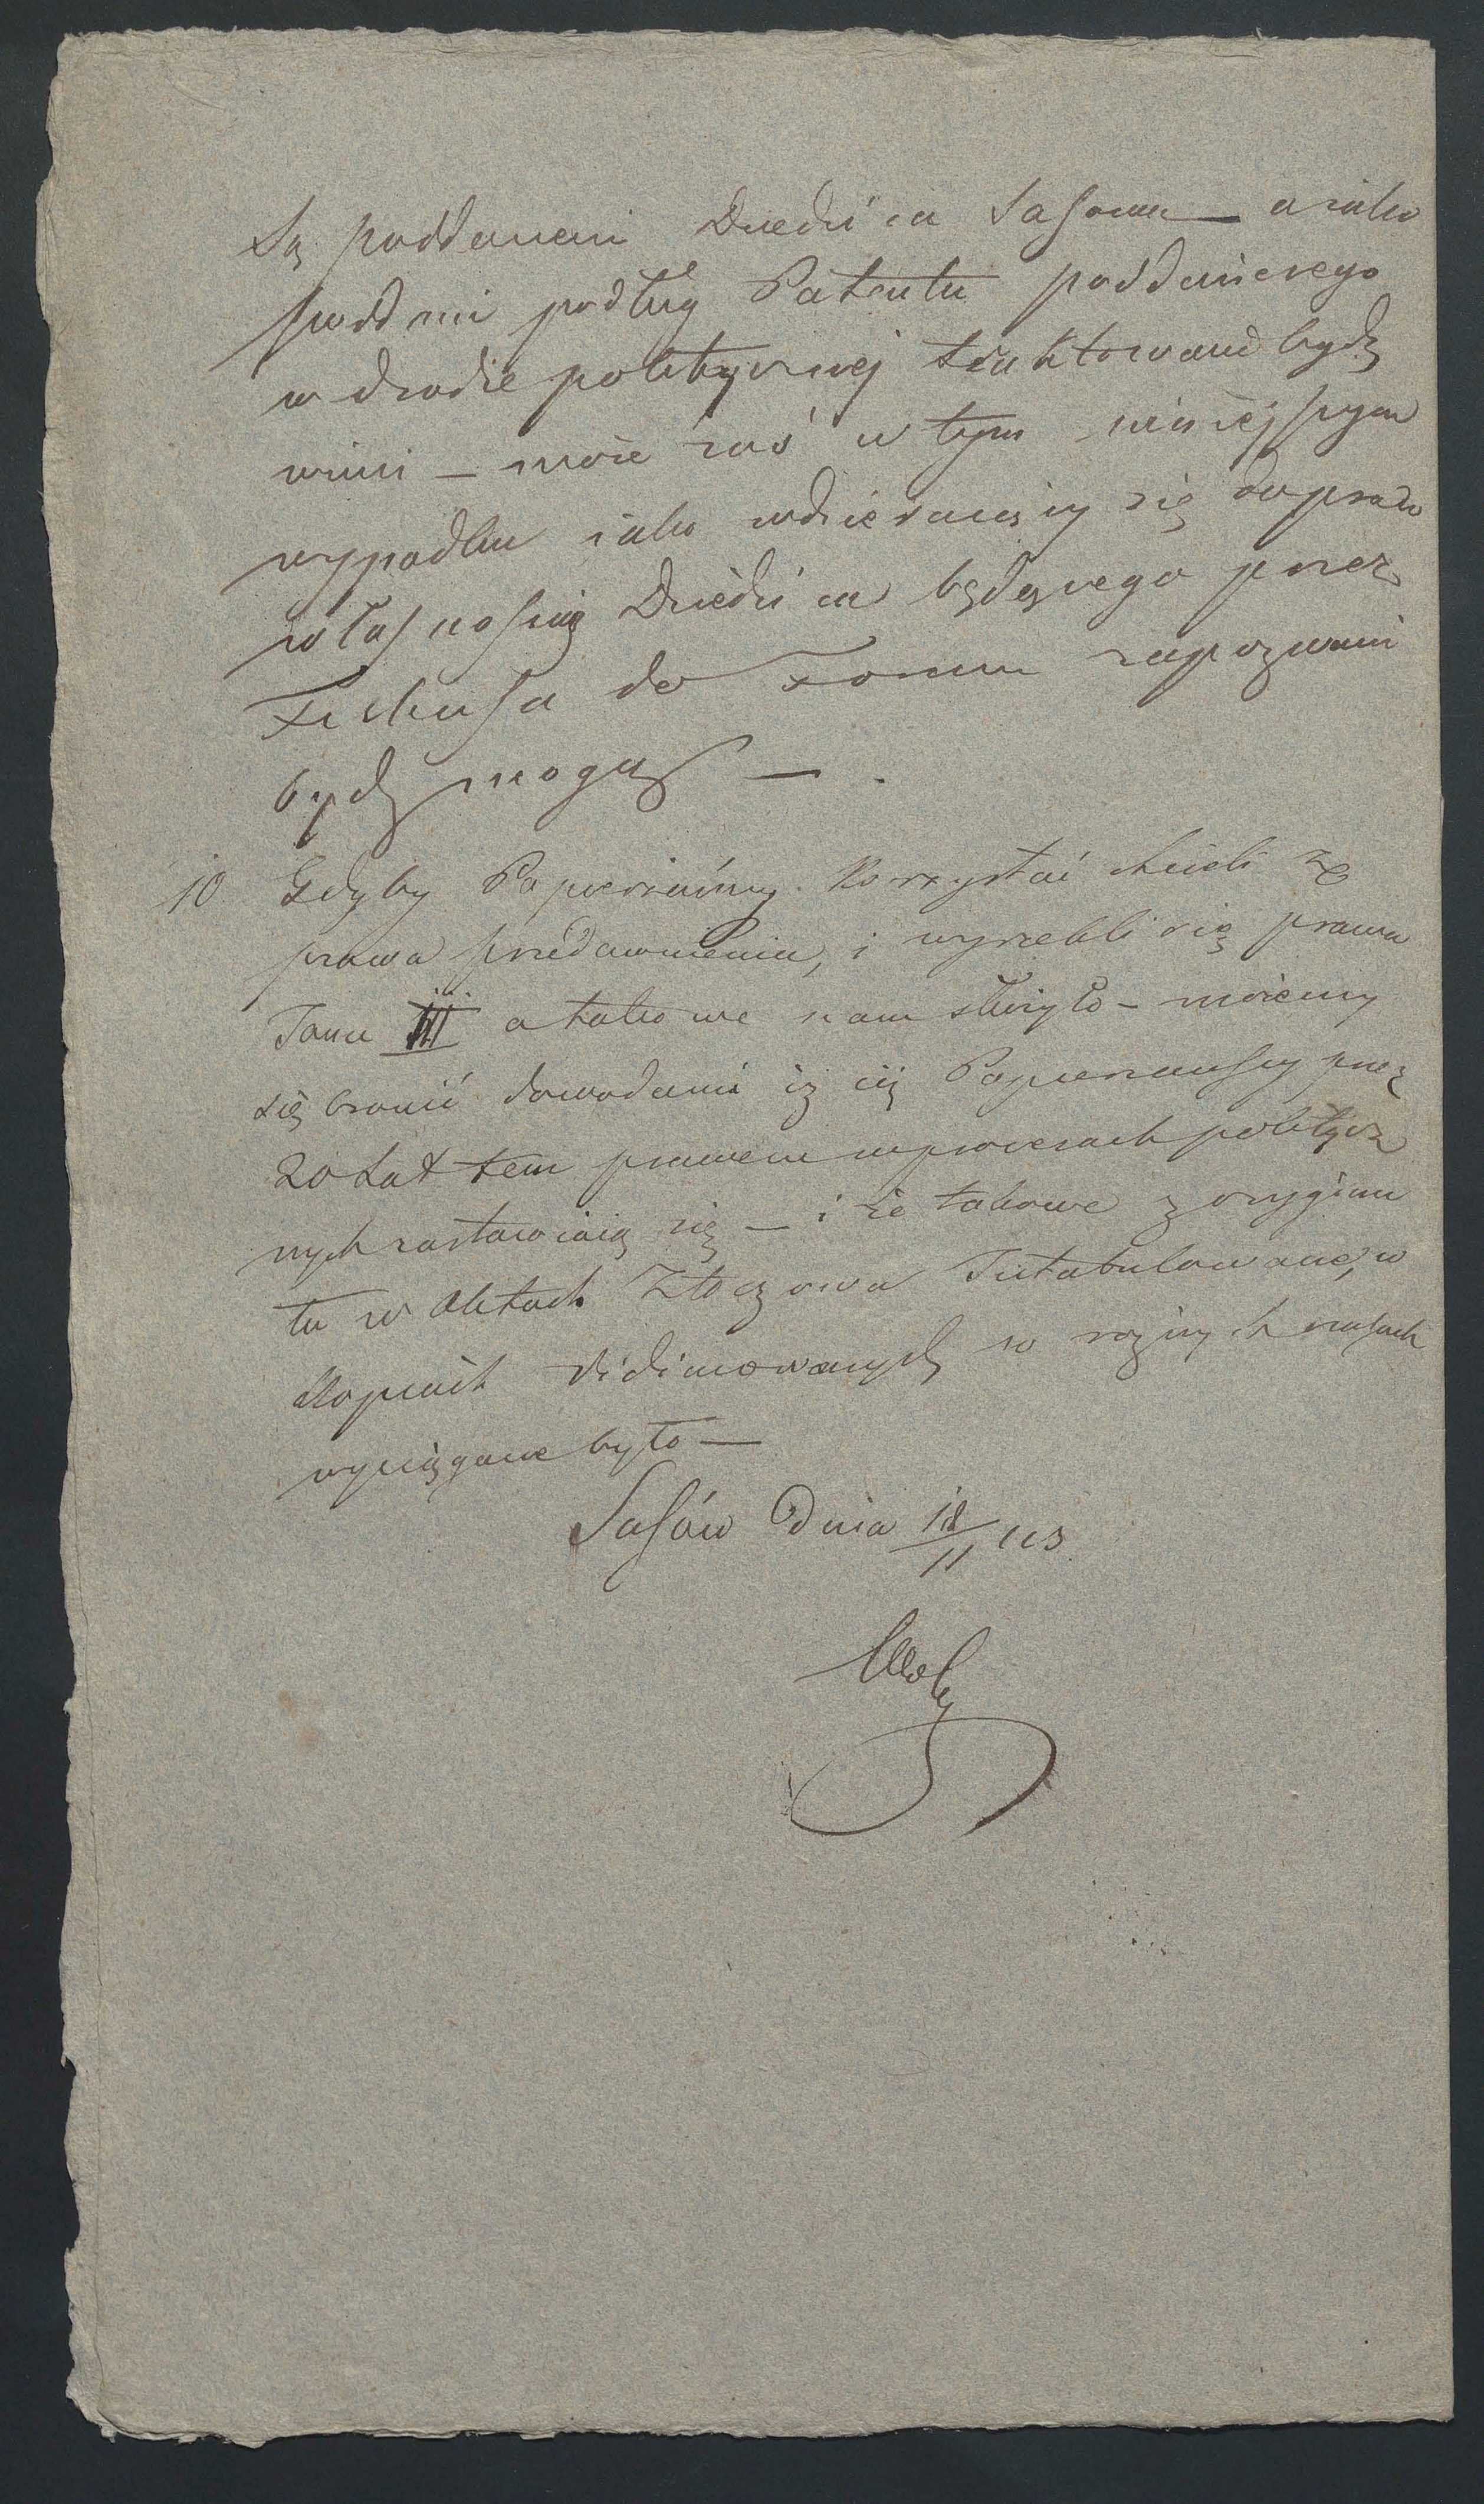 Są poddanemi Dziedzica Sasowa — a iako
poddani podług Patentu poddańczego
w drodze politycznej traktowani bydź
winni — może zaś w tym ninieiszym
wypadku iako wdzieraiący się do praw
własnością Dziedzica będącego przez
Fiskusa do Forum zapozwani
bydź mogą — .
10 Gdyby Papierniczy korzystać chcieli ze
prawa przedawnienia, i wyrzekli się prawa
Jana III a takowe nam służyło — możemy
się bronić dowodami iż cię Papierniczy przez
20 Lat tem prawem w procesach politycz
nych zastawiaią się — i że takowe z orygina
łu w Aktach Złoczowa Intabulowane, w
Kopiach Vidimowanych w rożnych czasach
wyciągane było —
Sasów Dnia 18/11